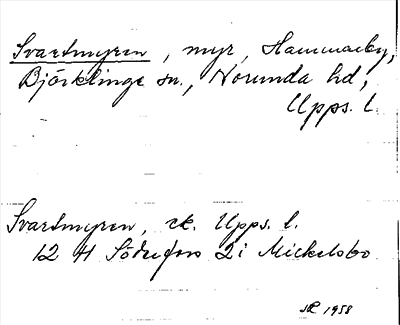 Svartmyren, myr, Hammarby,
Björklinge sn., Norunda hd,
Upps. l.
Svartmyren, ek. Upps. l.
12 H Söderfors 2 i Mickelsbo
1958